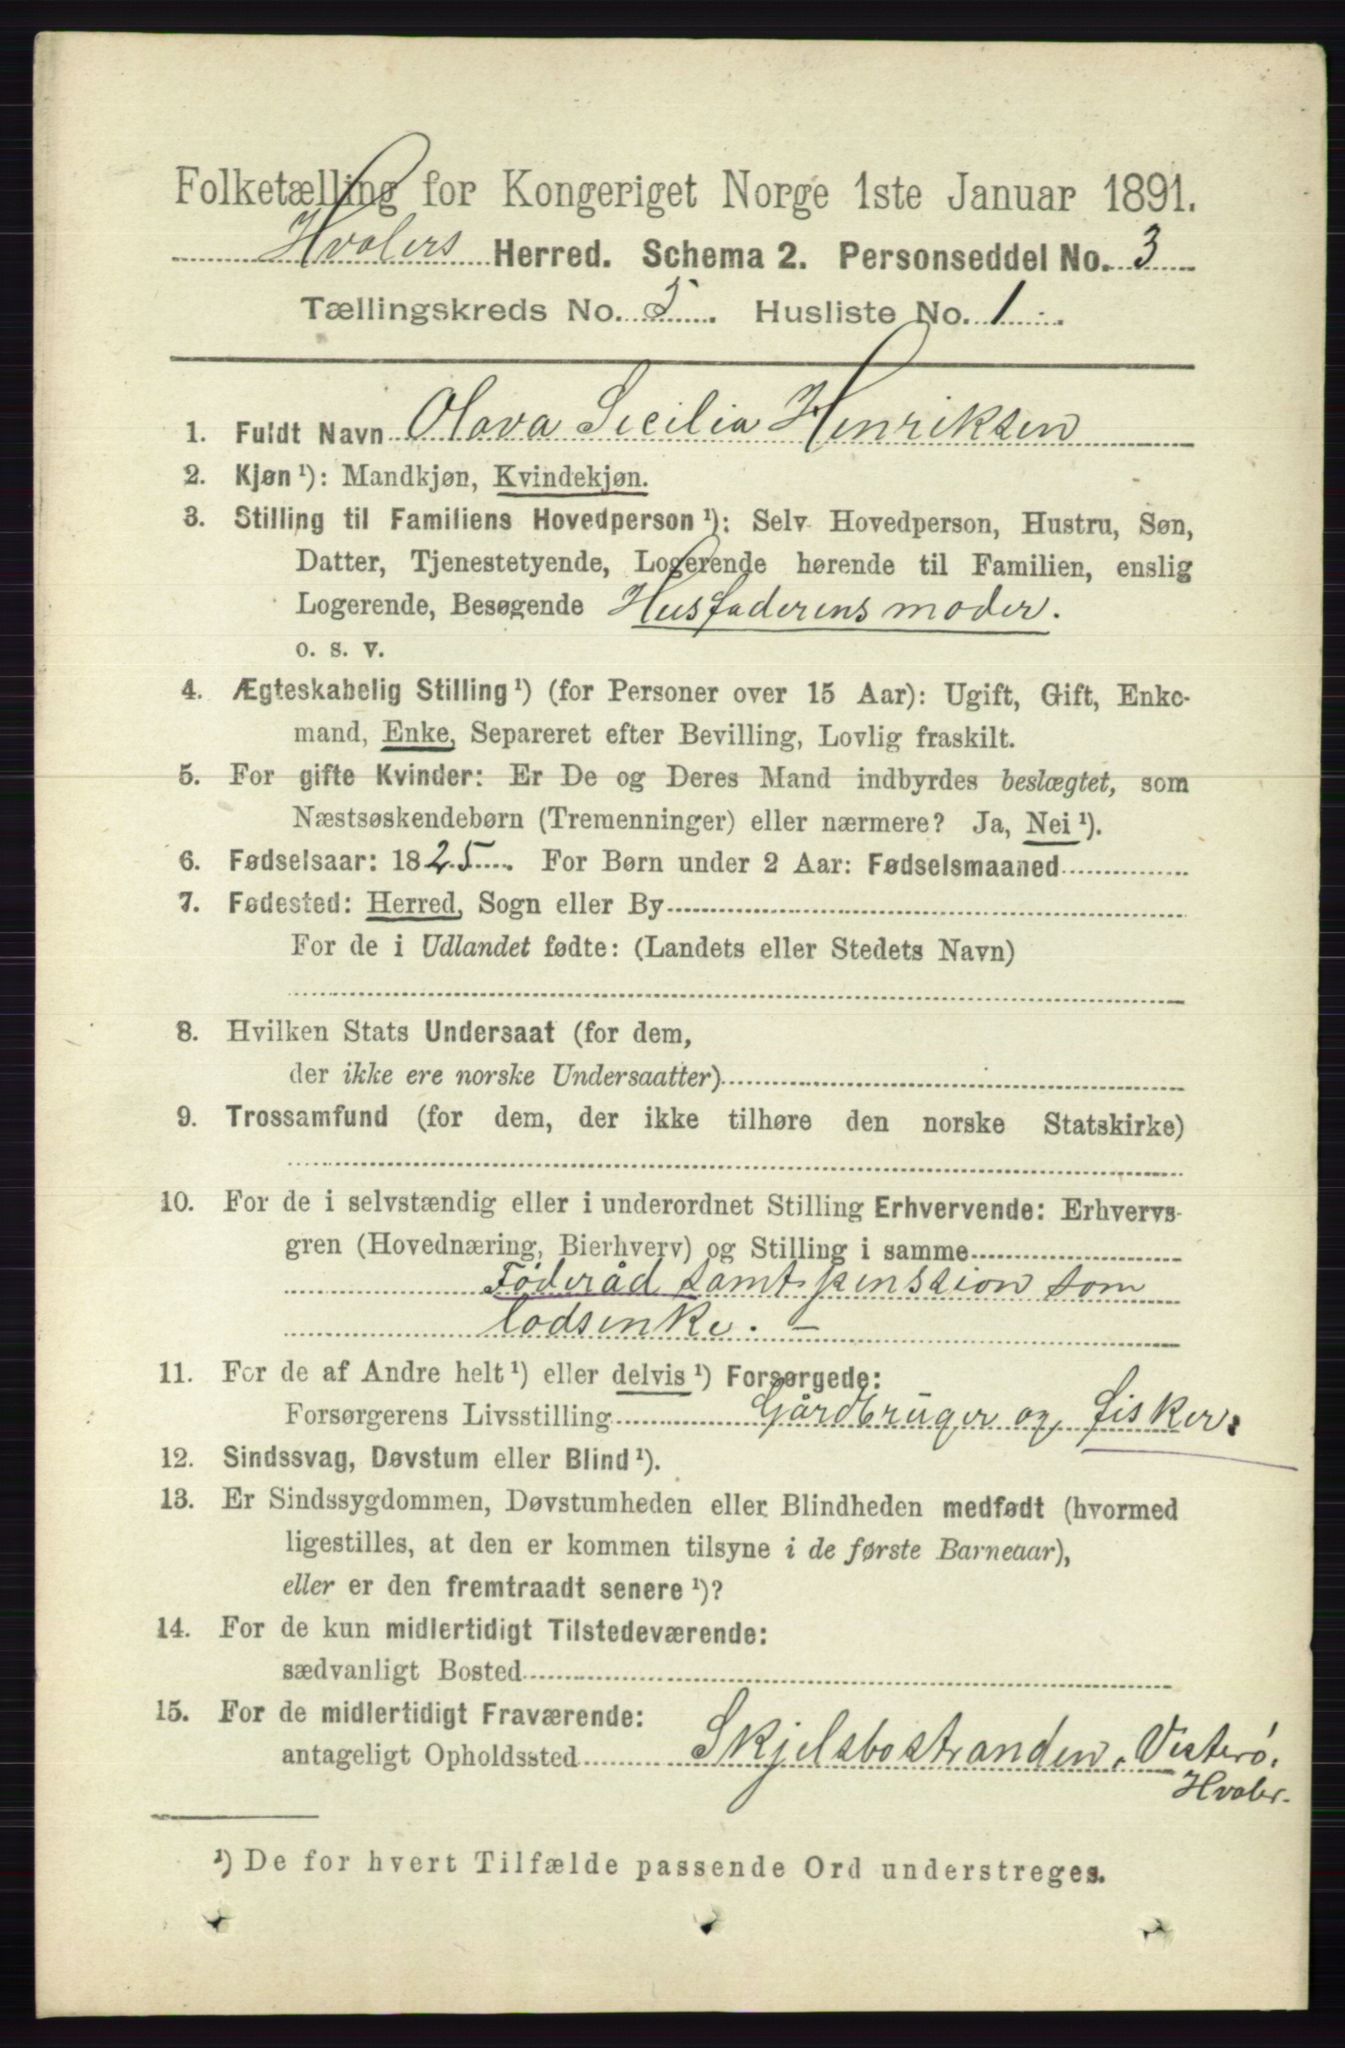 Folketælling for Kongeriget Norge 1ste Januar 1891.
Hvalers Herred. Schema 2. Personseddel No. 3
Tællingskreds No. 5. Husliste No. 1.
1. Fuldt Navn Olava Secilia Henriksen
2. Kjøn ¹): Mandkjøn, Kvindekjøn.
3. Stilling til Familiens Hovedperson ¹): Selv Hovedperson, Hustru, Søn,
Datter, Tjenestetyende, Logerende hørende til Familien, enslig
Logerende, Besøgende Husfaderens moder.
o. s. v.
4. Ægteskabelig Stilling ¹) (for Personer over 15 Aar): Ugift, Gift, Enke-
mand, Enke, Separeret efter Bevilling, Lovlig fraskilt.
5. For gifte Kvinder: Er De og Deres Mand indbyrdes beslægtet, som
Næstsøskendebørn (Tremenninger) eller nærmere? Ja, Nei ¹).
6. Fødselsaar: 1825. For Børn under 2 Aar: Fødselsmaaned
7. Fødested: Herred, Sogn eller By
For de i Udlandet fødte: (Landets eller Stedets Navn)
8. Hvilken Stats Undersaat (for dem,
der ikke ere norske Undersaatter)
9. Trossamfund (for dem, der ikke tilhøre den norske Statskirke)
10. For de i selvstændig eller i underordnet Stilling Erhvervende: Erhvervs-
gren (Hovednæring, Bierhverv) og Stilling i samme
Föderåd samt penssion som
lodsenke. –
11. For de af Andre helt ¹) eller delvis ¹) Forsørgede:
Forsørgerens Livsstilling Gårdbruger og fisker.
12. Sindssvag, Døvstum eller Blind ¹).
13. Er Sindssygdommen, Døvstumheden eller Blindheden medfødt (hvormed
ligestilles, at den er kommen tilsyne i de første Barneaar),
eller er den fremtraadt senere ¹)?
14. For de kun midlertidigt Tilstedeværende:
sædvanligt Bosted
15. For de midlertidigt Fraværende:
antageligt Opholdssted Skjelsbostranden, Vesterö,
Hvaler.
¹) De for hvert Tilfælde passende Ord understreges.